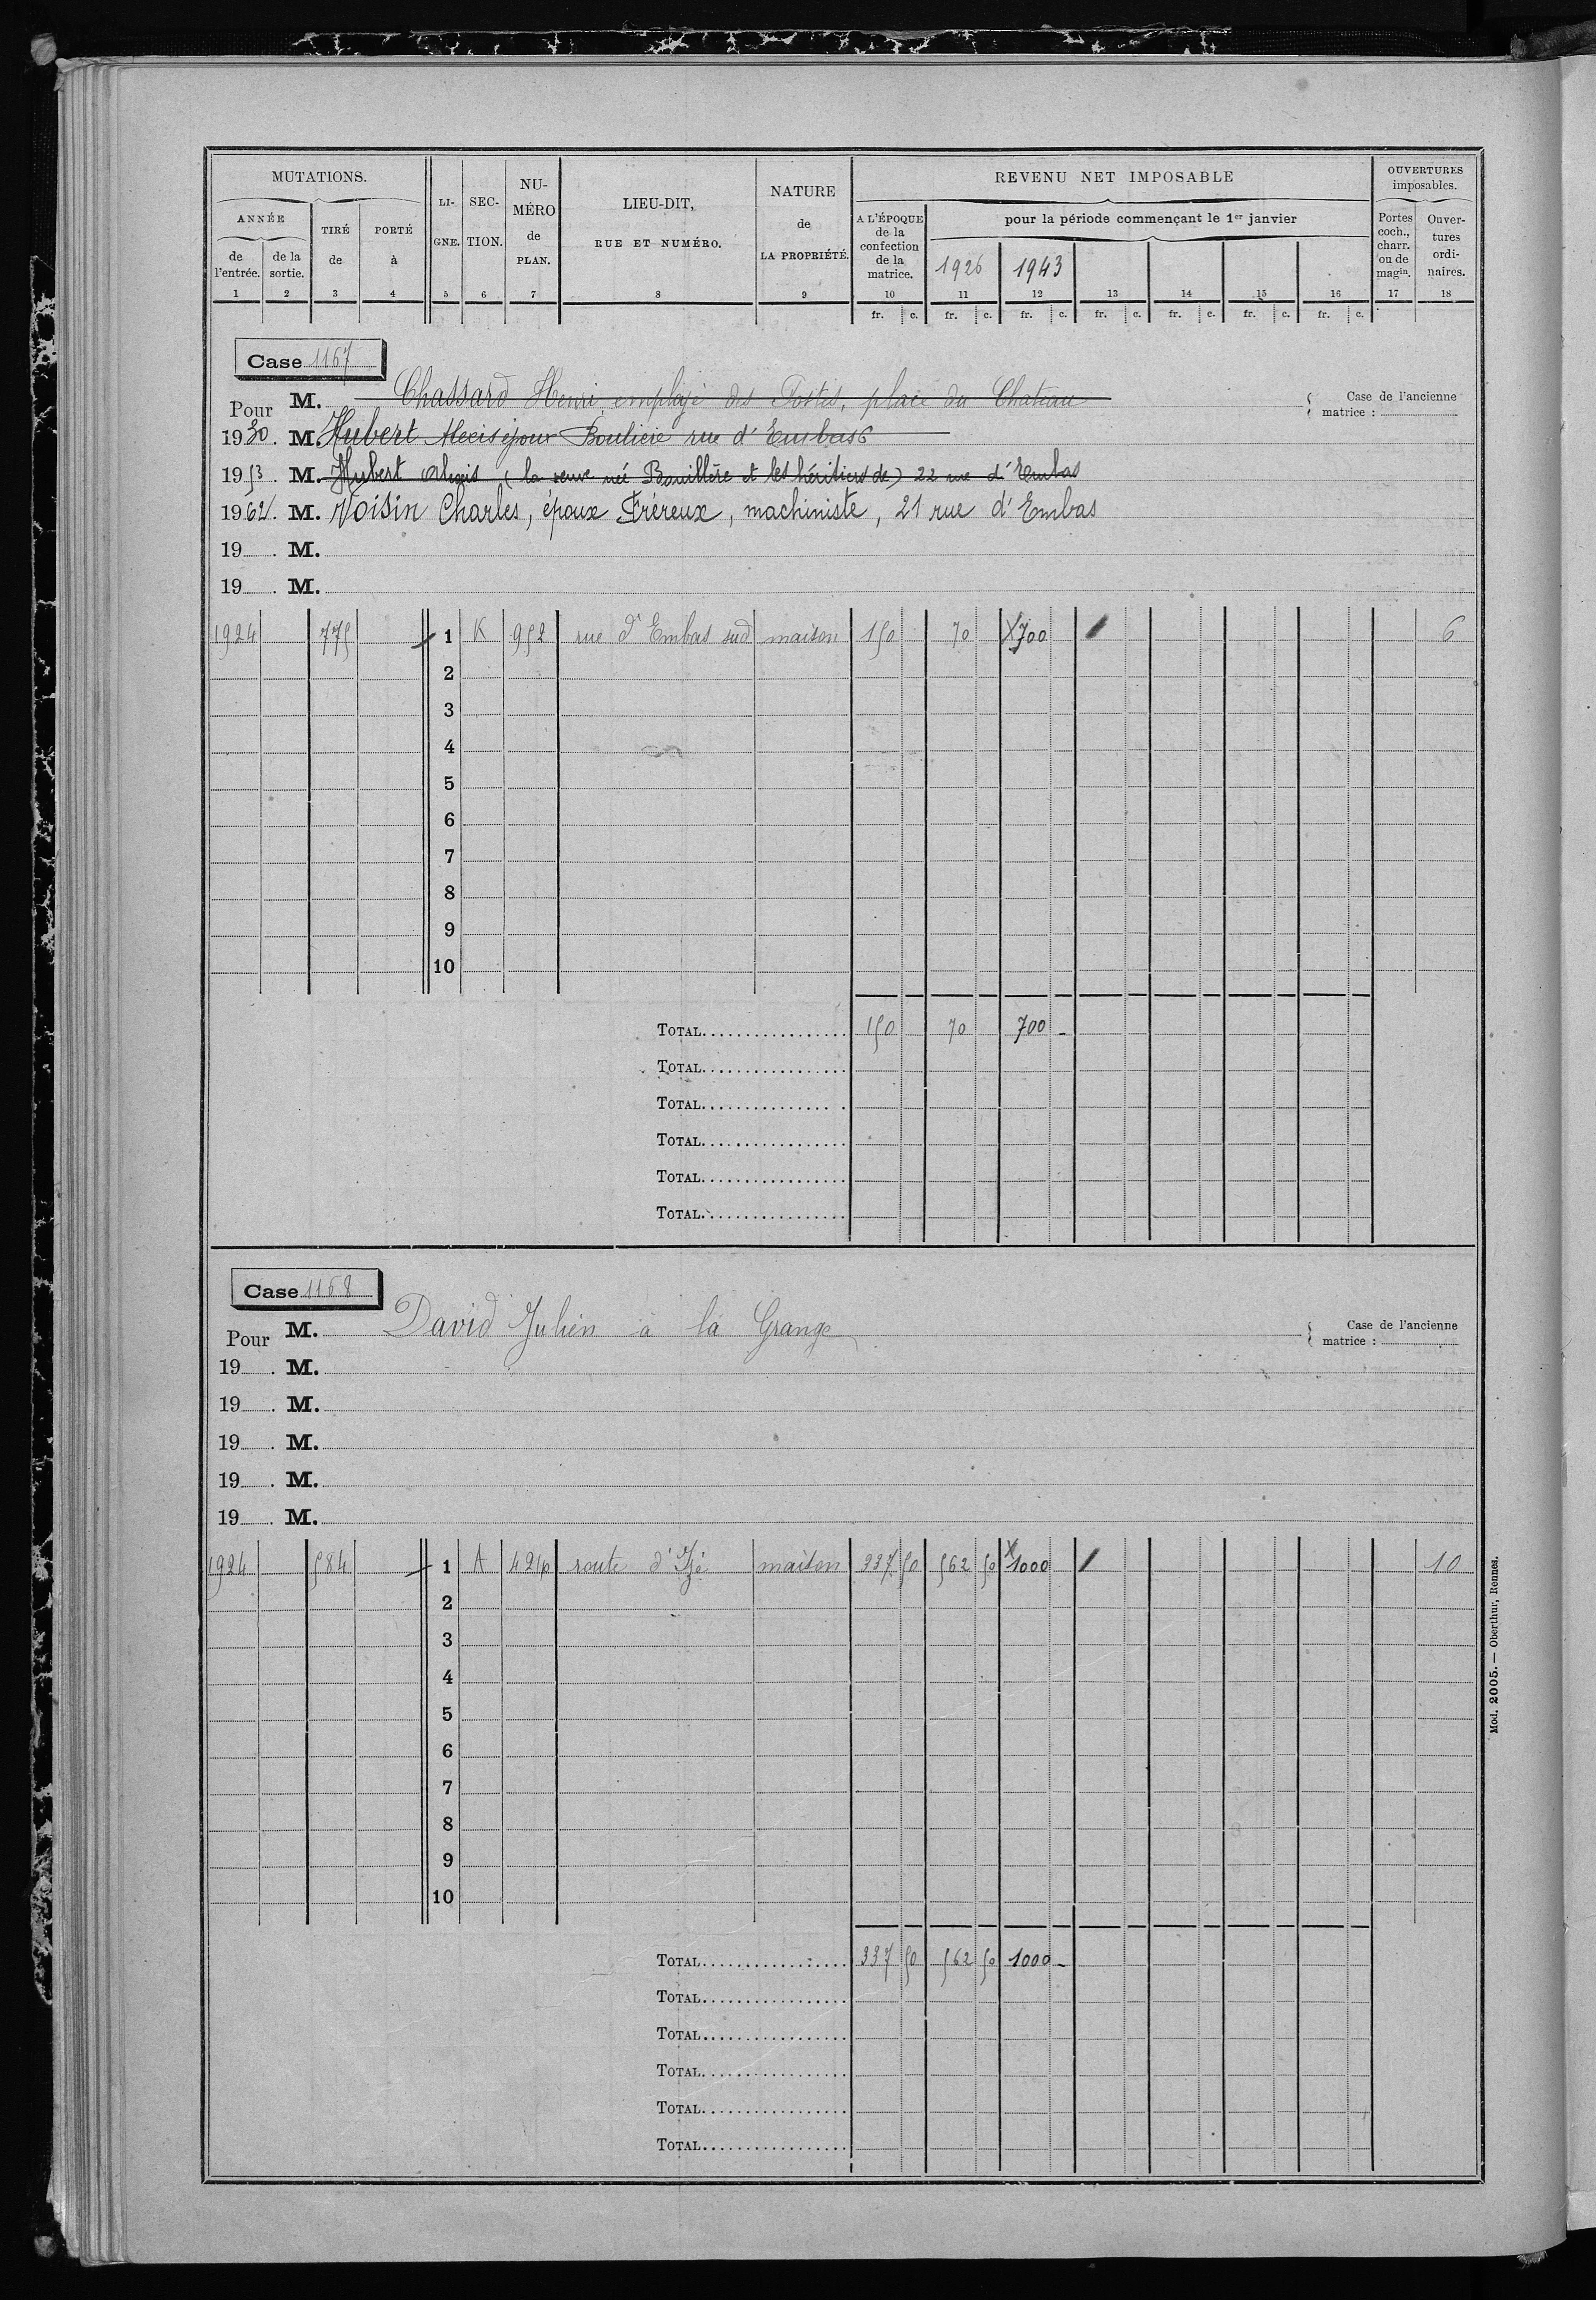 MUTATIONS.
ANNÉE
de l'entrée.
de la sortie.
TIRÉ de
PORTÉ à
LI-GNE.
SEC-TION.
NU-MÉRO de PLAN.
LIEU-DIT, RUE ET NUMÉRO.
NATURE de LA PROPRIÉTÉ.
REVENU NET IMPOSABLE
A L'ÉPOQUE de la confection de la matrice.
pour la période commençant le 1er janvier
1926 1943
OUVERTURES imposables.
Portes coch., charr. ou de magin.
Ouver-tures ordi-naires.
1 2 3 4 5 6 7 8 9 10 11 12 13 14 15 16 17 18
fr. c. fr. c. fr. c. fr. c. fr. c. fr. c. fr. c.
Case 1167
Pour M. Chassard Henri, employé des Postes, place du Chateau
Case de l'ancienne matrice :
1930. M. Hubert Alexis époux rue d'Embas 6
1953. M. Hubert Alexis (la veuve née Bouillère et les héritiers de) 22 rue d'Embas
1962. M. Voisin Charles, époux Fréreux, machiniste, 21 rue d'Embas
19 . M.
19 . M.
1924 775 1 K 952 rue d'Embas sud maison 150 70 X700 6
2
3
4
5
6
7
8
9
10
TOTAL 150 70 700 -
TOTAL
TOTAL
TOTAL
TOTAL
TOTAL
Case 1168
Pour M. David Julien à la Grange
Case de l'ancienne matrice :
19 . M.
19 . M.
19 . M.
19 . M.
19 . M.
1924 584 1 A 424p route d'Izé maison 337 50 562 50 X1000 10
2
3
4
5
6
7
8
9
10
TOTAL 337 50 562 50 1000 -
TOTAL
TOTAL
TOTAL
TOTAL
TOTAL
Mod. 2005. — Oberthur, Rennes.